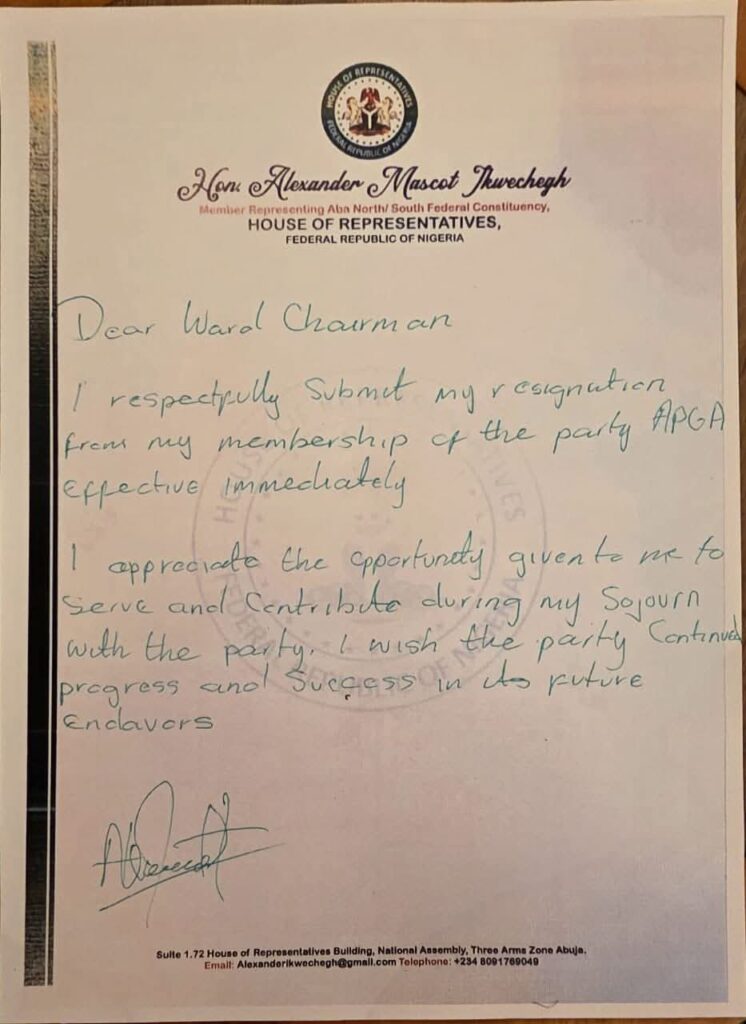 HOUSE OF REPRESENTATIVES
FEDERAL REPUBLIC OF NIGERIA
Hon. Alexander Mascot Ikwechegh
Member Representing Aba North/ South Federal Constituency,
HOUSE OF REPRESENTATIVES,
FEDERAL REPUBLIC OF NIGERIA
Dear Ward Chairman
I respectfully Submit my resignation
from my membership of the party APGA
Effective immediately
I appreciate the opportunity given to me to
Serve and Contribute during my Sojourn
with the party. I wish the party Continued
progress and Success in its future
Endavors
HOUSE OF REPRESENTATIVES
FEDERAL REPUBLIC OF NIGERIA
Suite 1.72 House of Representatives Building, National Assembly, Three Arms Zone Abuja.
Email: Alexanderikwechegh@gmail.com Telephone: +234 8091769049